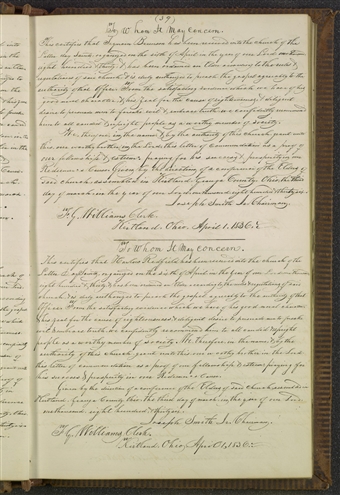 (59)
To Whom It May concern.
This certifies that Benson has been received into the church of the
Latter day Saints, organized on the sixth of April in the year of our Lord one thousand
eight hundred & thirty & has been ordained an Elder according to the rules &
regulations of said church & is duly authorized to preach the gospel agreeably to the
authority of that office. From the satisfactory evidence which we have of his
good moral character, & his zeal for the cause of righteousness, & diligent
desire to persuade men to forsake evil & embrace truth we confidently recommend
him to all candid & upright people as a worthy member of society.
We, therefore, in the name, & by the authority of this church, grant unto
this, our worthy brother in the Lord, this letter of commendation as a proof of
our fellowship & esteem: praying for his success & prosperity in our
Redeemer's Cause. Given by the direction of a conference of the Elders of
said church, assembled in Kirtland, Geauga County, Ohio, the third
day of march, in the year of our Lord, one thousand eight hundred thirty six.
Joseph Smith Jr. Chairman.
F. G. Williams Clerk.
Kirtland, Ohio, April 1, 1836.
To Whom It May concern.
This certifies that Harlow Redfield has been received into the church of the
Latter day Saints, organized on the sixth of April in the year of our Lord one thousand
eight hundred & thirty, & has been ordained an Elder according to the rules & regulations of said
church, & is duly authorized to preach the gospel agreeably to the authority of that
Office. From the satisfactory evidence which we have of his good moral character,
& his zeal for the cause of righteousness, & diligent desire to persuade men to forsake
evil & embrace truth we confidently recommend him to all candid & upright
people as a worthy member of society. We, therefore, in the name, & by the
authority of this church grant unto this, our worthy brother in the Lord
this letter of commendation as a proof of our fellowship & esteem: praying for
his success & prosperity in our Redeemer's Cause.
Given by the direction of a conference of the Elders of said church assembled in
Kirtland, Geauga County, Ohio the third day of march, in the year of our Lord
one thousand eight hundred thirty six.
Joseph Smith Jr. Chairman.
F. G. Williams Clerk.
Kirtland, Ohio, April 1, 1836.